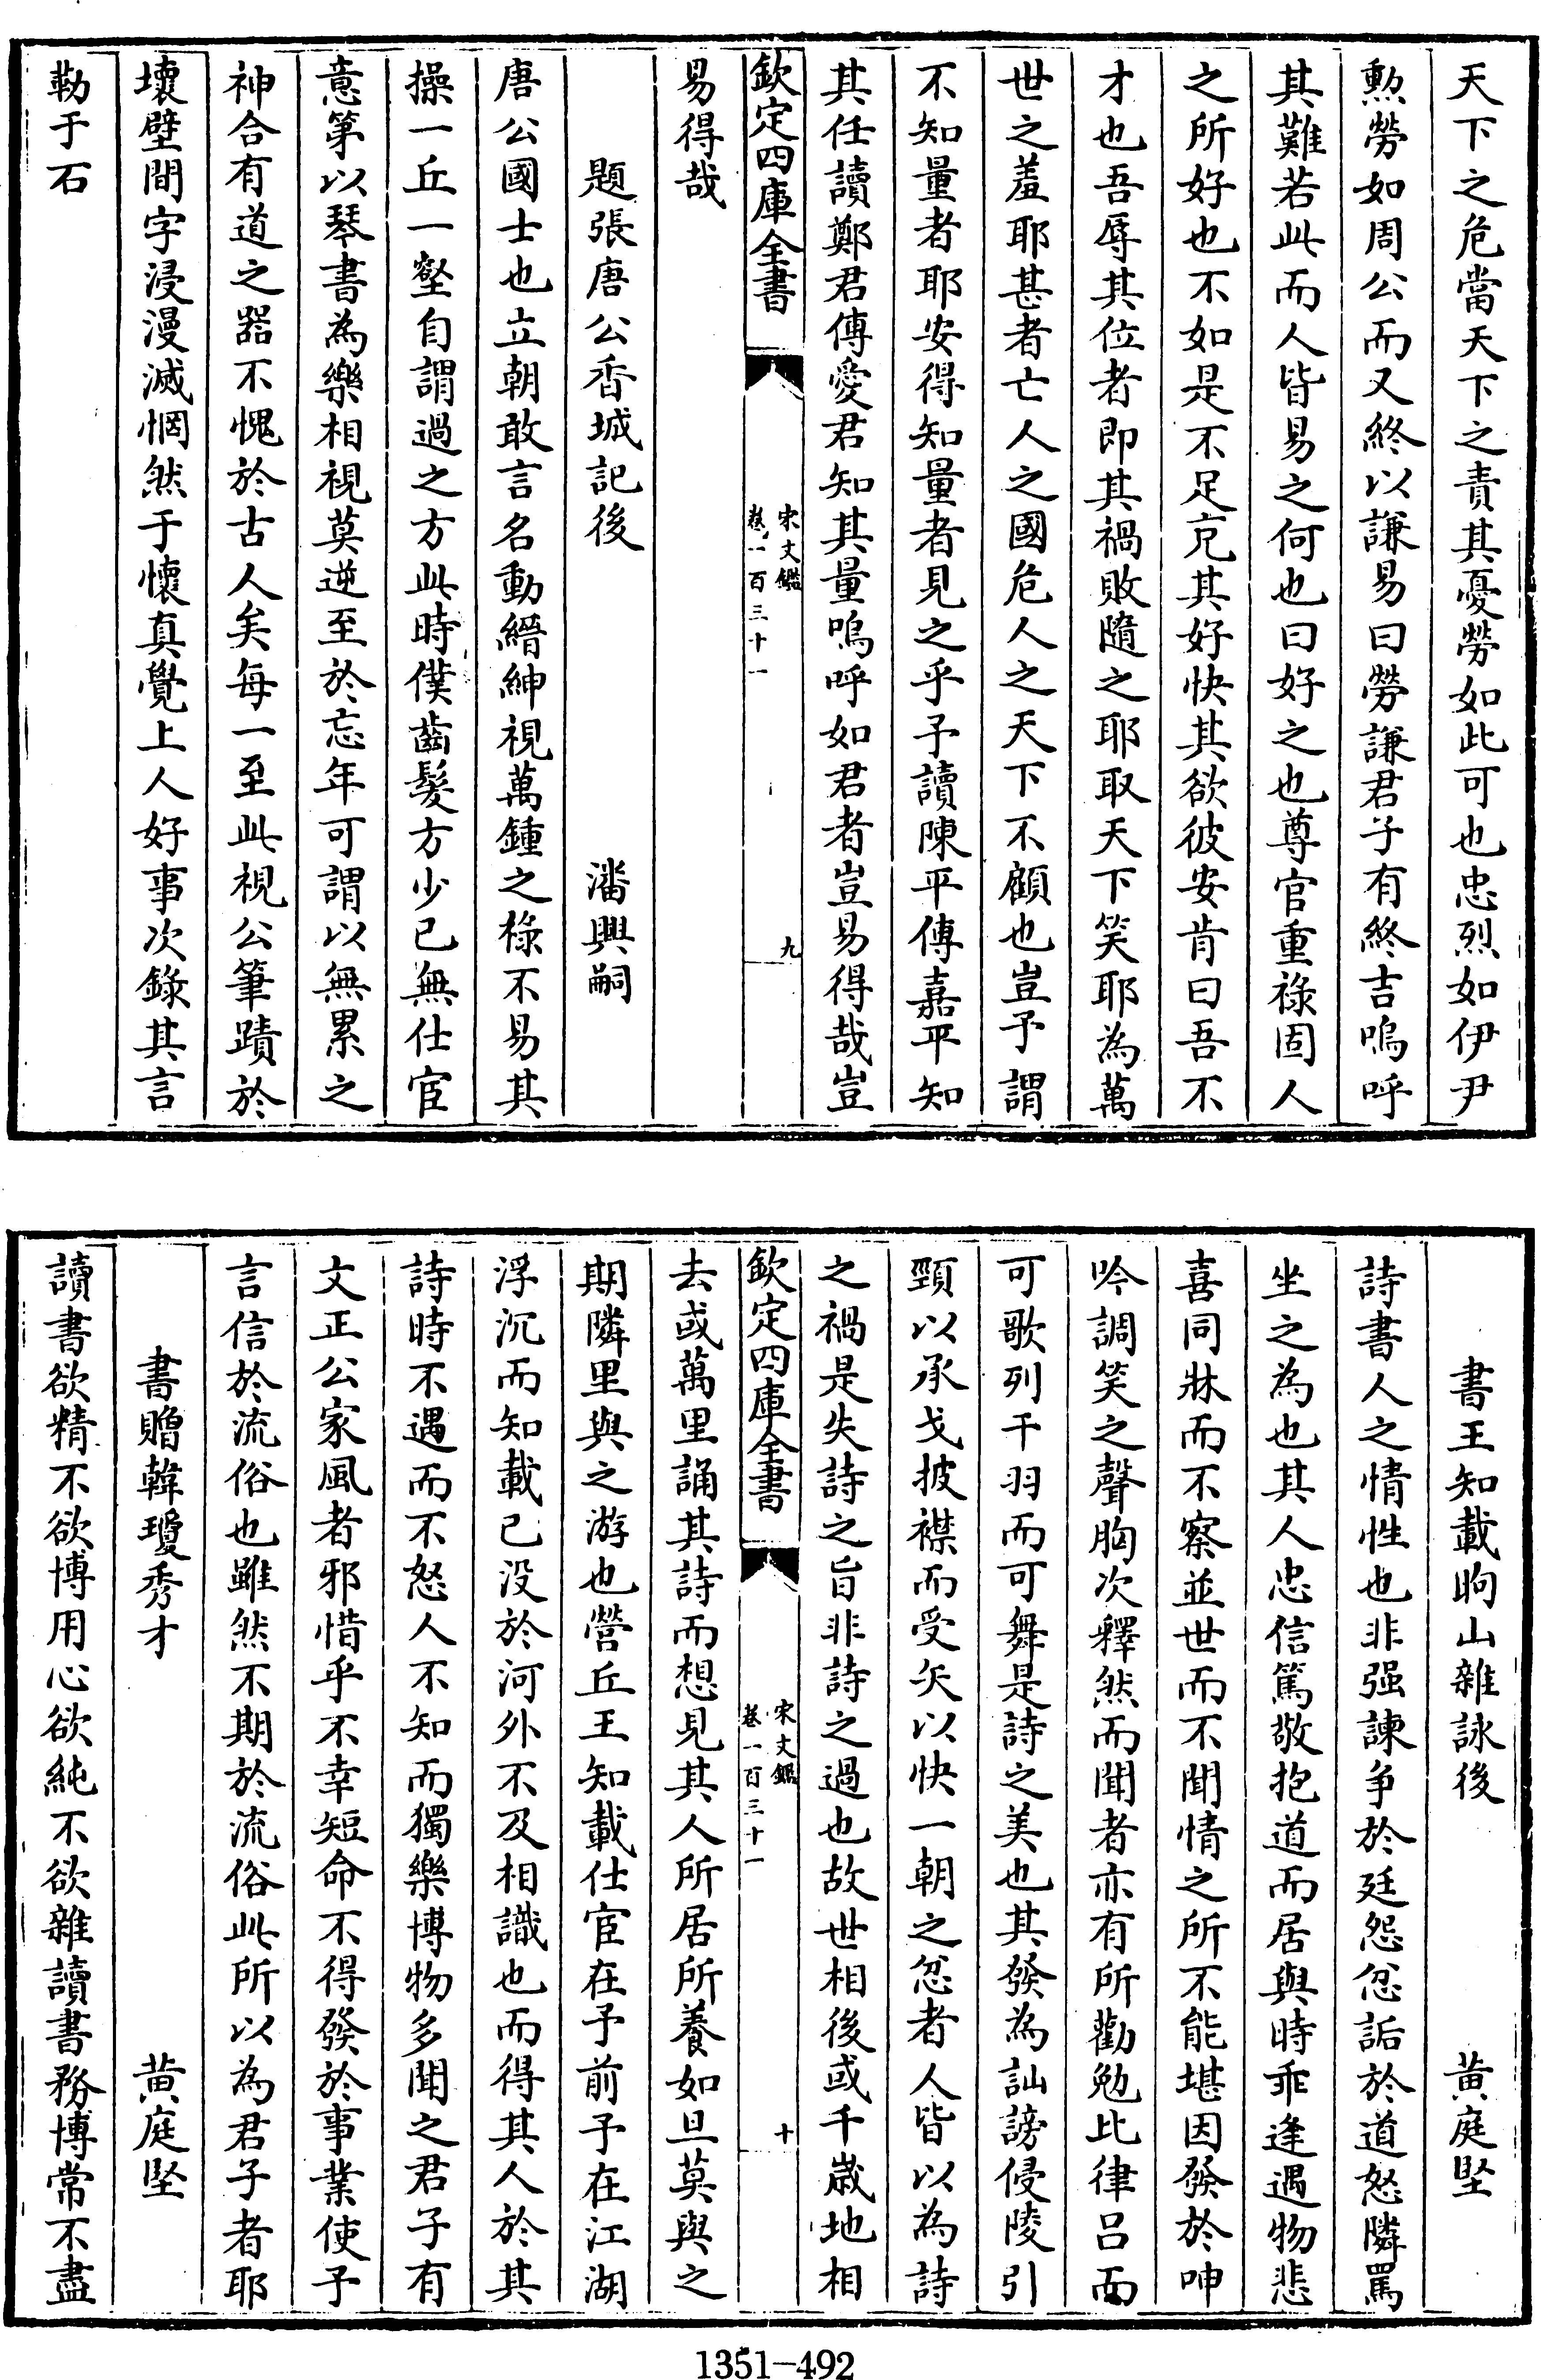 天下之危當天下之責其憂勞如此可也忠烈如伊尹
勲勞如周公而又終以謙易曰勞謙君子有終吉嗚呼
其難若此而人皆易之何也曰好之也尊官重祿固人
之所好也不如是不足克其好快其欲彼安肯曰吾不
才也吾辱其位者即其禍敗隨之耶取天下笑耶為萬
世之羞耶甚者亡人之國危人之天下不顧也豈予謂
不知量者耶安得知量者見之乎予讀陳平傳嘉平知
其任讀鄭君傳愛君知其量嗚呼如君者豈易得哉豈
欽定四庫全書
宋文鑑
卷一百三十一
九
易得哉
題張唐公香城記後
潘興嗣
唐公國士也立朝敢言名動縉紳視萬鍾之祿不易其
操一丘一壑自謂過之方此時僕齒髮方少已無仕宦
意第以琴書為樂相視莫逆至於忘年可謂以無累之
神合有道之器不愧於古人矣每一至此視公筆蹟於
壞壁間字浸漫滅惘然于懷真覺上人好事次錄其言
勒于石
書王知載昫山雜詠後
黄庭堅
詩書人之情性也非强諫争於廷怨忿詬於道怒隣罵
坐之為也其人忠信篤敬抱道而居與時乖逢遇物悲
喜同牀而不察並世而不聞情之所不能堪因發於呻
吟調笑之聲胸次釋然而聞者亦有所勸勉比律吕而
可歌列干羽而可舞是詩之美也其發為訕謗侵陵引
頸以承戈披襟而受矢以快一朝之忿者人皆以為詩
之禍是失詩之旨非詩之過也故世相後或千歲地相
欽定四庫全書
宋文鑑
卷一百三十一
十
去或萬里誦其詩而想見其人所居所養如旦莫與之
期隣里與之游也營丘王知載仕宦在予前予在江湖
浮沉而知載已没於河外不及相識也而得其人於其
詩時不遇而不怒人不知而獨樂博物多聞之君子有
文正公家風者邪惜乎不幸短命不得發於事業使予
言信於流俗也雖然不期於流俗此所以為君子者耶
書贈韓瓊秀才
黄庭堅
讀書欲精不欲博用心欲純不欲雜讀書務博常不盡
1351-492